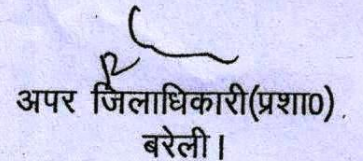 अपर जिलाधिकारी(प्रशा0)
बरेली।